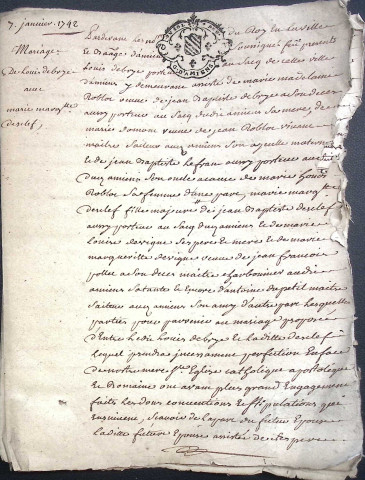 7. janvier. 1742
Mariage
De Louis deboye
avec
marie marg^tte
desclef,
Pardevant les no du Roy en la ville
Louis deboye port au sacq de cette ville
d'amiens y demeurant assisté de marie madelaine
Roblot veuve de jean Baptiste deboye a son deces
aussy portteur au sacq audit amiens sa mere, de
marie veuve de jean Roblot vivant
maitre tailleur audit amiens son ayeulle maternelle
et de jean Baptiste le fran aussy porteur au
amiens son oncle a cause de marie
Roblot sa femme d'une part, marie marg^tte
desclef fille majeure de jean Baptiste desclef
aussy portteur au sacq du amiens et de marie
Louise devigne ses pere et mere et de marie
margueritte devigne veuve de jean francois
a son deces maitre charbonnier audit
amiens sa tante et d'antoine depetit maitre
audit amiens son amy d'autre part Lesquelles
parties pour parvenir au mariage proposé
Entre ledit Louis deboye et laditte desclef
lequel prendra incessament perfection En face
de notre mere S^te Eglise catholique apostolique
et Romaine ont avant plus grand Engagement
faits les dons conventions et stipulations qui
Ensuivent, scavoir de la part du futur Epoux
laditte future Epouse assistée de ses pere